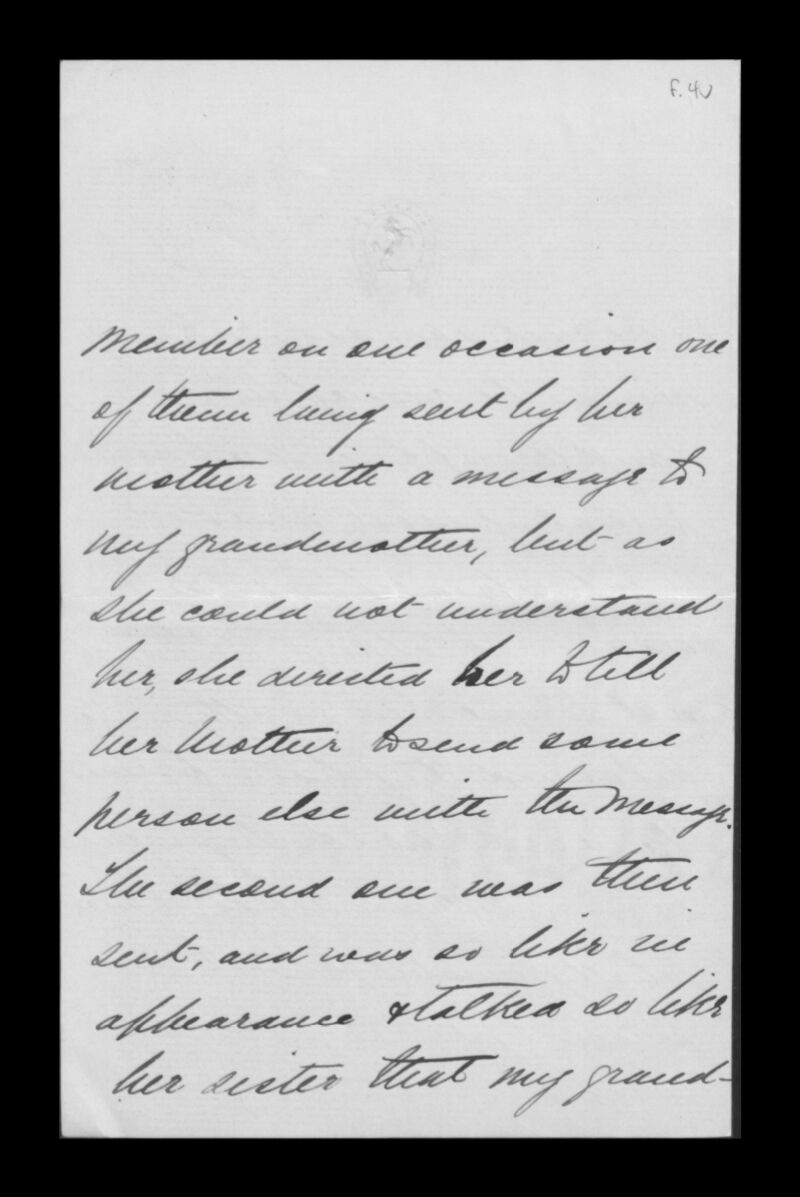 f. 4v
member on one occasion one
of them being sent by her
mother with a message to
my grandmother, but as
she could not understand
her, she directed her to tell
her Mother to send some
person else with the message.
The second one was then
sent, and was so like in
appearance & talked so like
her sister that my grand-